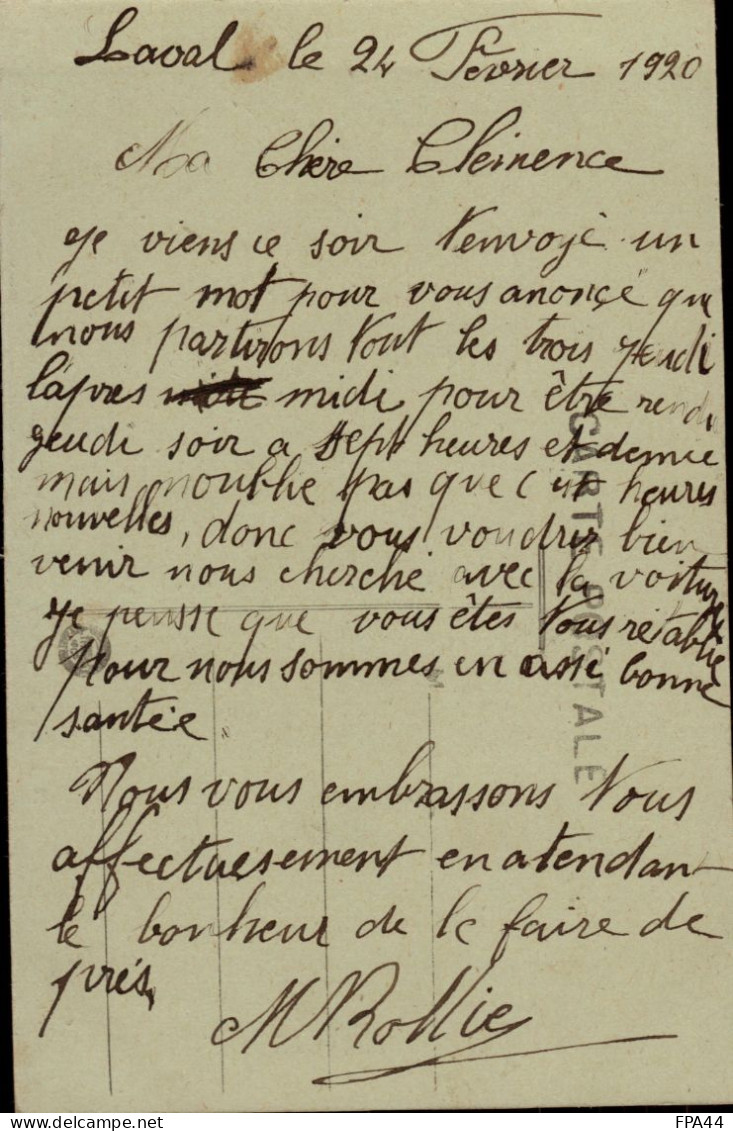 Laval le 24 Février 1920
Ma Chère Clémence
Je viens ce soir t'envoyé un
petit mot pour vous anoncé que
nous partirons tout les trois jeudi
l'apres midi pour être rendu
jeudi soir a sept heures et demie
mais n'oublie pas que c'est heures
nouvelles, donc vous voudrez bien
venir nous cherché avec la voiture
Je pensse que vous êtes tous rétablie
pour nous sommes en assé bonne
santée
Nous vous embrassons tous
affectuesement en atendant
le bonheur de le faire de
près,
M Rollie
CARTE POSTALE
FPA44